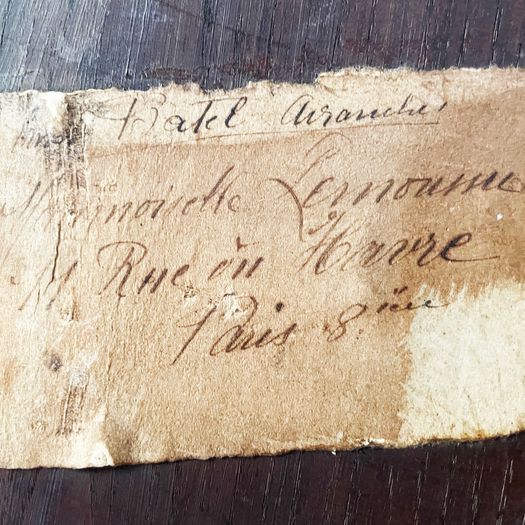 Batel Avranches
Mademoiselle Lemonnie
11 Rue du Havre
Paris 8 ième